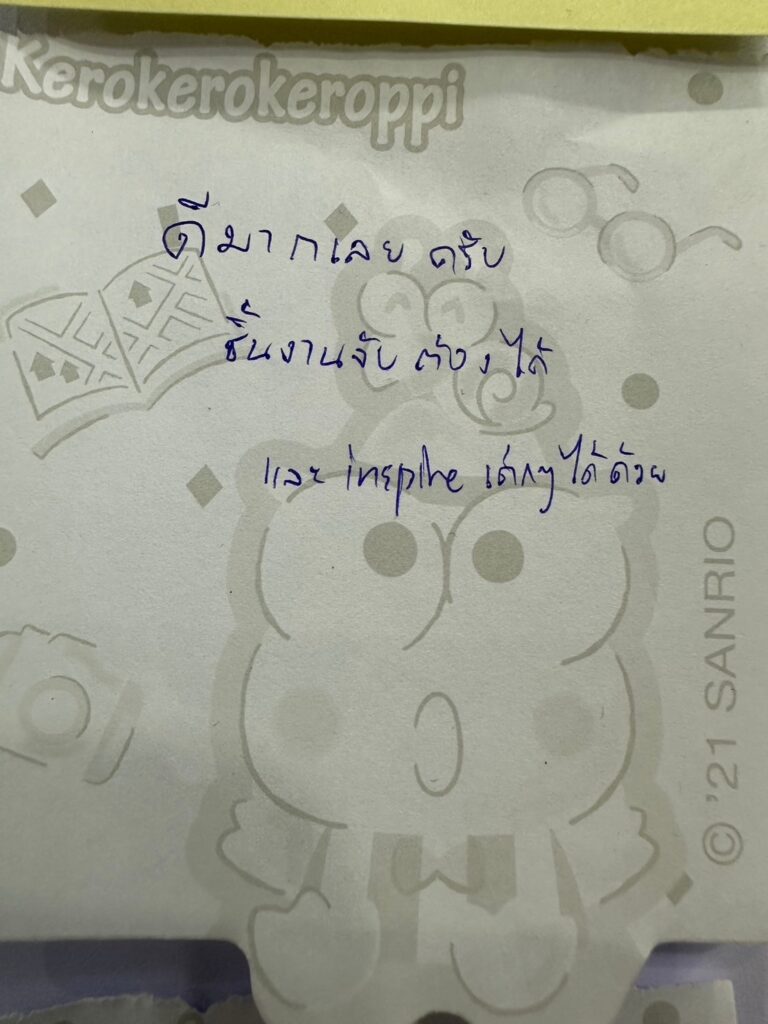 Kerokerokeroppi
ดีมากเลย ครับ
ชิ้นงานจับ ต้องได้
และ inspire เด็กๆ ได้ด้วย
© '21 SANRIO